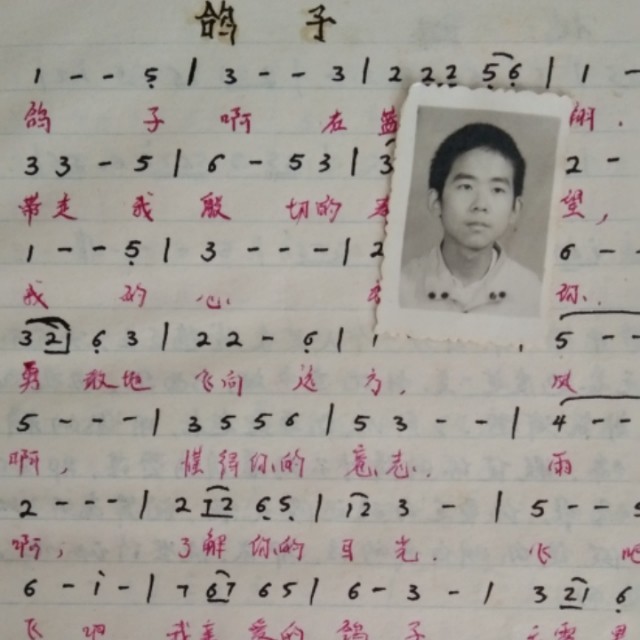 鸽 子
1 - - 5 | 3 - - 3 | 2 2 2 5 6 | 1 -
鸽 子 啊 在 蓝
3 3 - 5 | 6 - 5 3 | 3 2 -
带走 我 殷 切的 望，
1 - - 5 | 3 - - - | 2 6 - -
我 的 心 你.
3 2 6 3 | 2 2 - 6 | 1 5 - -
勇 敢地 飞向 远 方， 风
5 - - - | 3 5 5 6 | 5 3 - - | 4 - -
啊， 懂得你的 意志. 雨
2 - - - | 2 1 2 6 5 | 1 2 3 - | 5 - - 5
啊， 了解 你的 目 光. 飞 吧
6 - i - | 7 6 7 6 5 | 6 - 3 - | 3 2 1 6
飞 吧 我亲 爱的 鸽 子